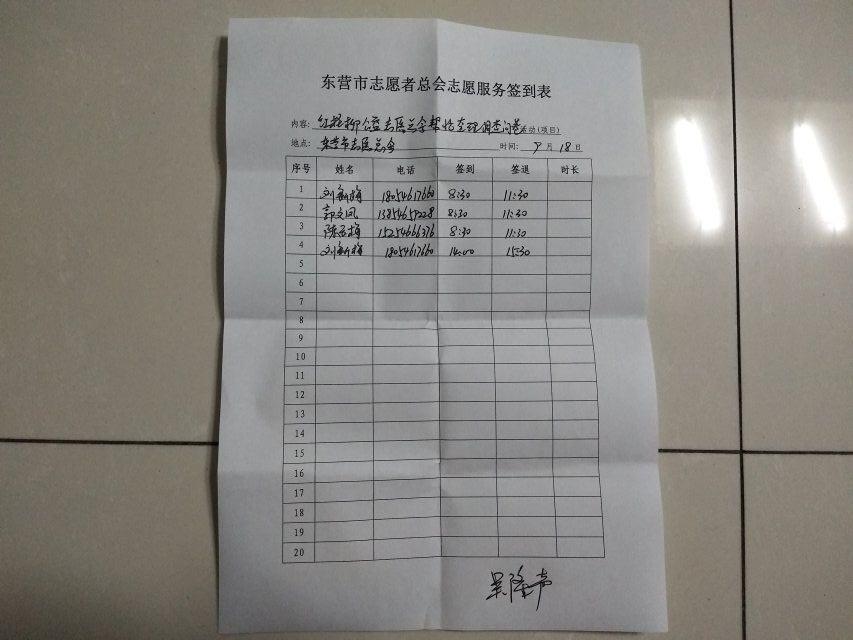 东营市志愿者总会志愿服务签到表
内容: 红柽柳公益志愿总会帮忙整理调查问卷活动(项目)
地点: 东营市志愿总会 时间: 9月18日
序号 姓名 电话 签到 签退 时长
1 刘 18054617660 8:30 11:30
2 郭文凤 13854659228 8:30 11:30
3 15254666376 8:30 11:30
4 刘 18054617660 14:00 15:30
5
6
7
8
9
10
11
12
13
14
15
16
17
18
19
20